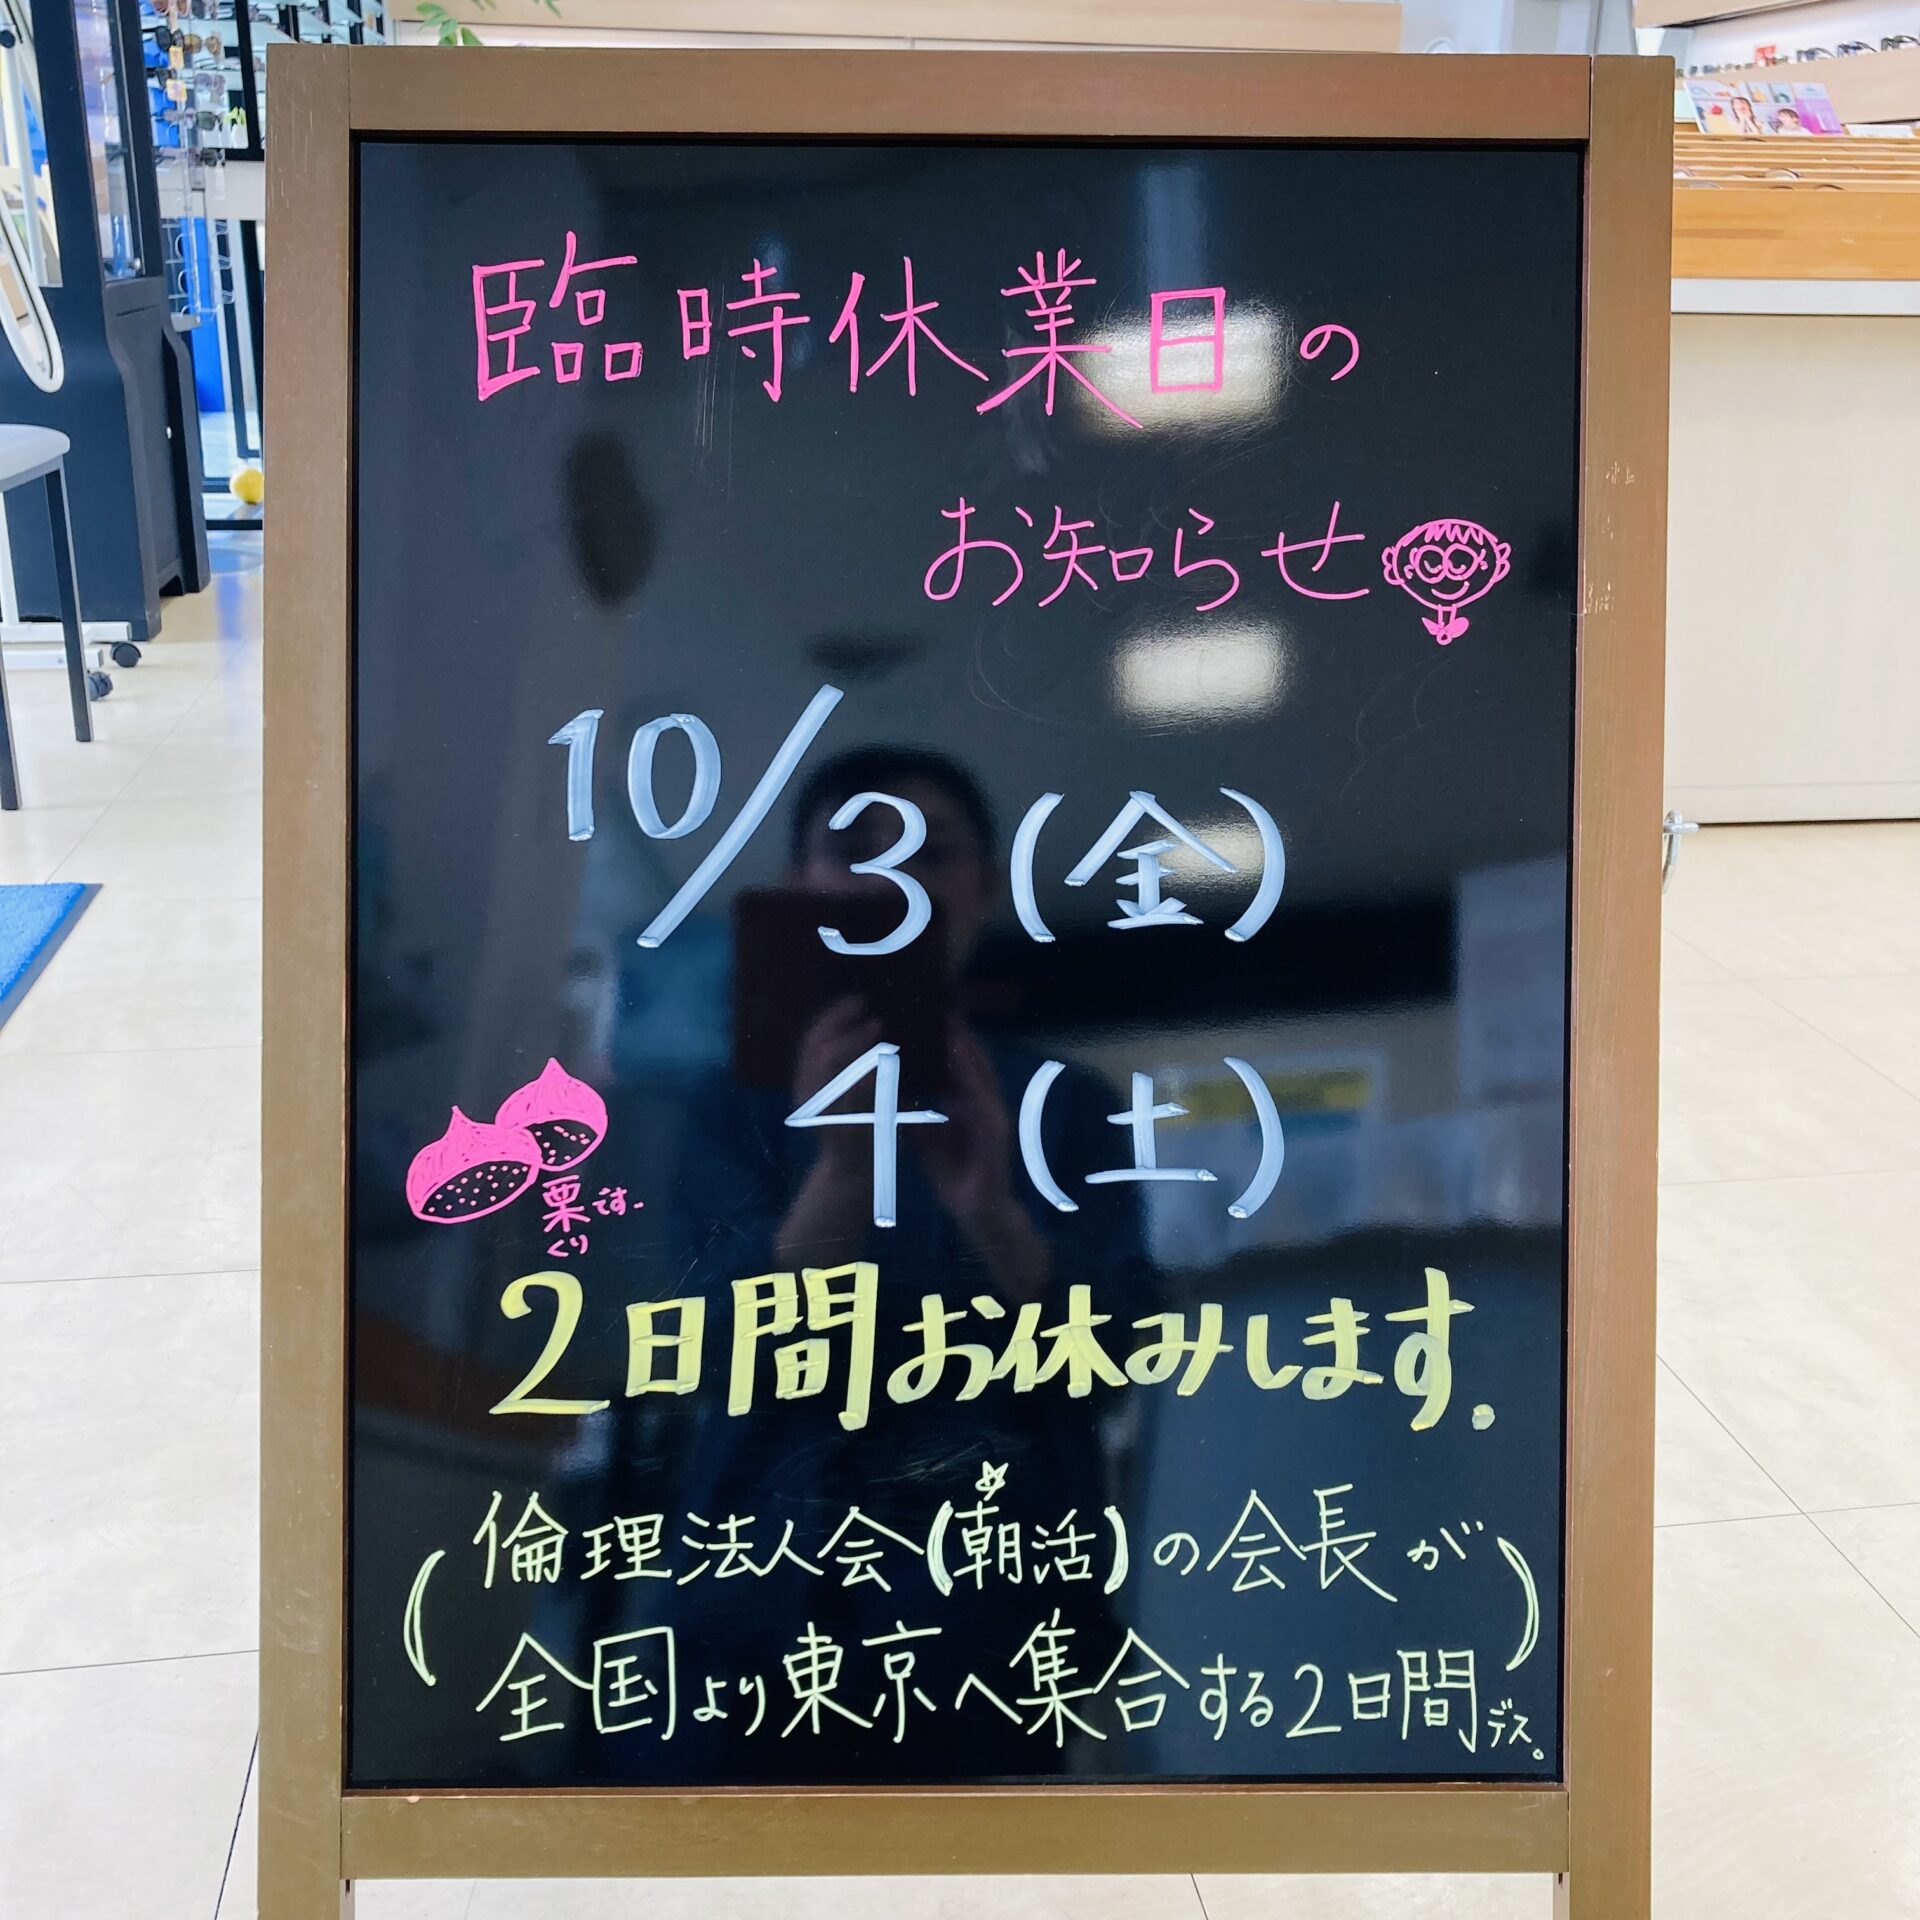 臨時休業日の
お知らせ
10/3(金)
4(土)
栗です。
くり
2日間お休みします.
(倫理法人会(朝活)の会長が
全国より東京へ集合する2日間デス。)